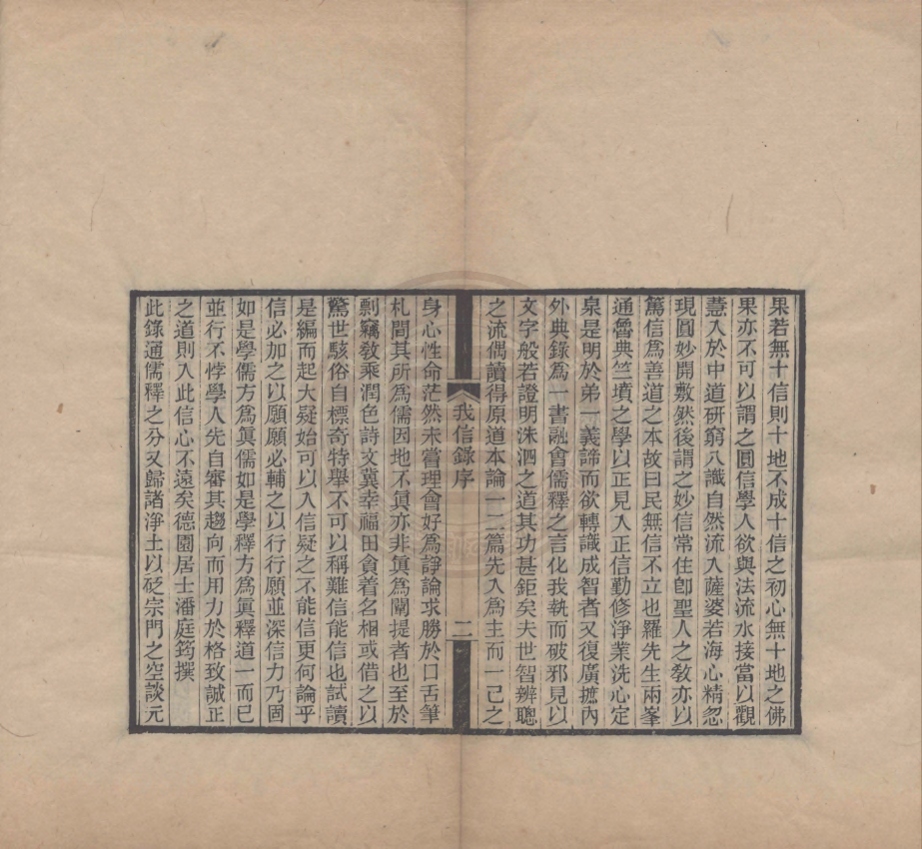 果若無十信則十地不成十信之初心無十地之佛
果亦不可以謂之圓信學人欲與法流水接當以觀
慧入於中道研窮八識自然流入薩婆若海心精忽
現圓妙開敷然後謂之妙信常住卽聖人之教亦以
篤信為善道之本故曰民無信不立也羅先生兩峯
通魯典竺墳之學以正見入正信勤修淨業洗心定
泉是明於弟一義諦而欲轉識成智者又復廣摭內
外典錄為一書融會儒釋之言化我執而破邪見以
文字般若證明洙泗之道其功甚鉅矣夫世智辨聰
之流偶讀得原道本論一二篇先入為主而一己之
我信錄序
二
身心性命茫然未嘗理會好為諍論求勝於口舌筆
札間其所為儒因地不眞亦非眞為闡提者也至於
剽竊敎乘潤色詩文冀幸福田貪着名相或借之以
驚世駭俗自標奇特舉不可以稱難信能信也試讀
是編而起大疑始可以入信疑之不能信更何論乎
信必加之以願願必輔之以行行願並深信力乃固
如是學儒方為眞儒如是學釋方為眞釋道一而已
並行不悖學人先自審其趨向而用力於格致誠正
之道則入此信心不遠矣德園居士潘庭筠撰
此錄通儒釋之分又歸諸淨土以砭宗門之空談元